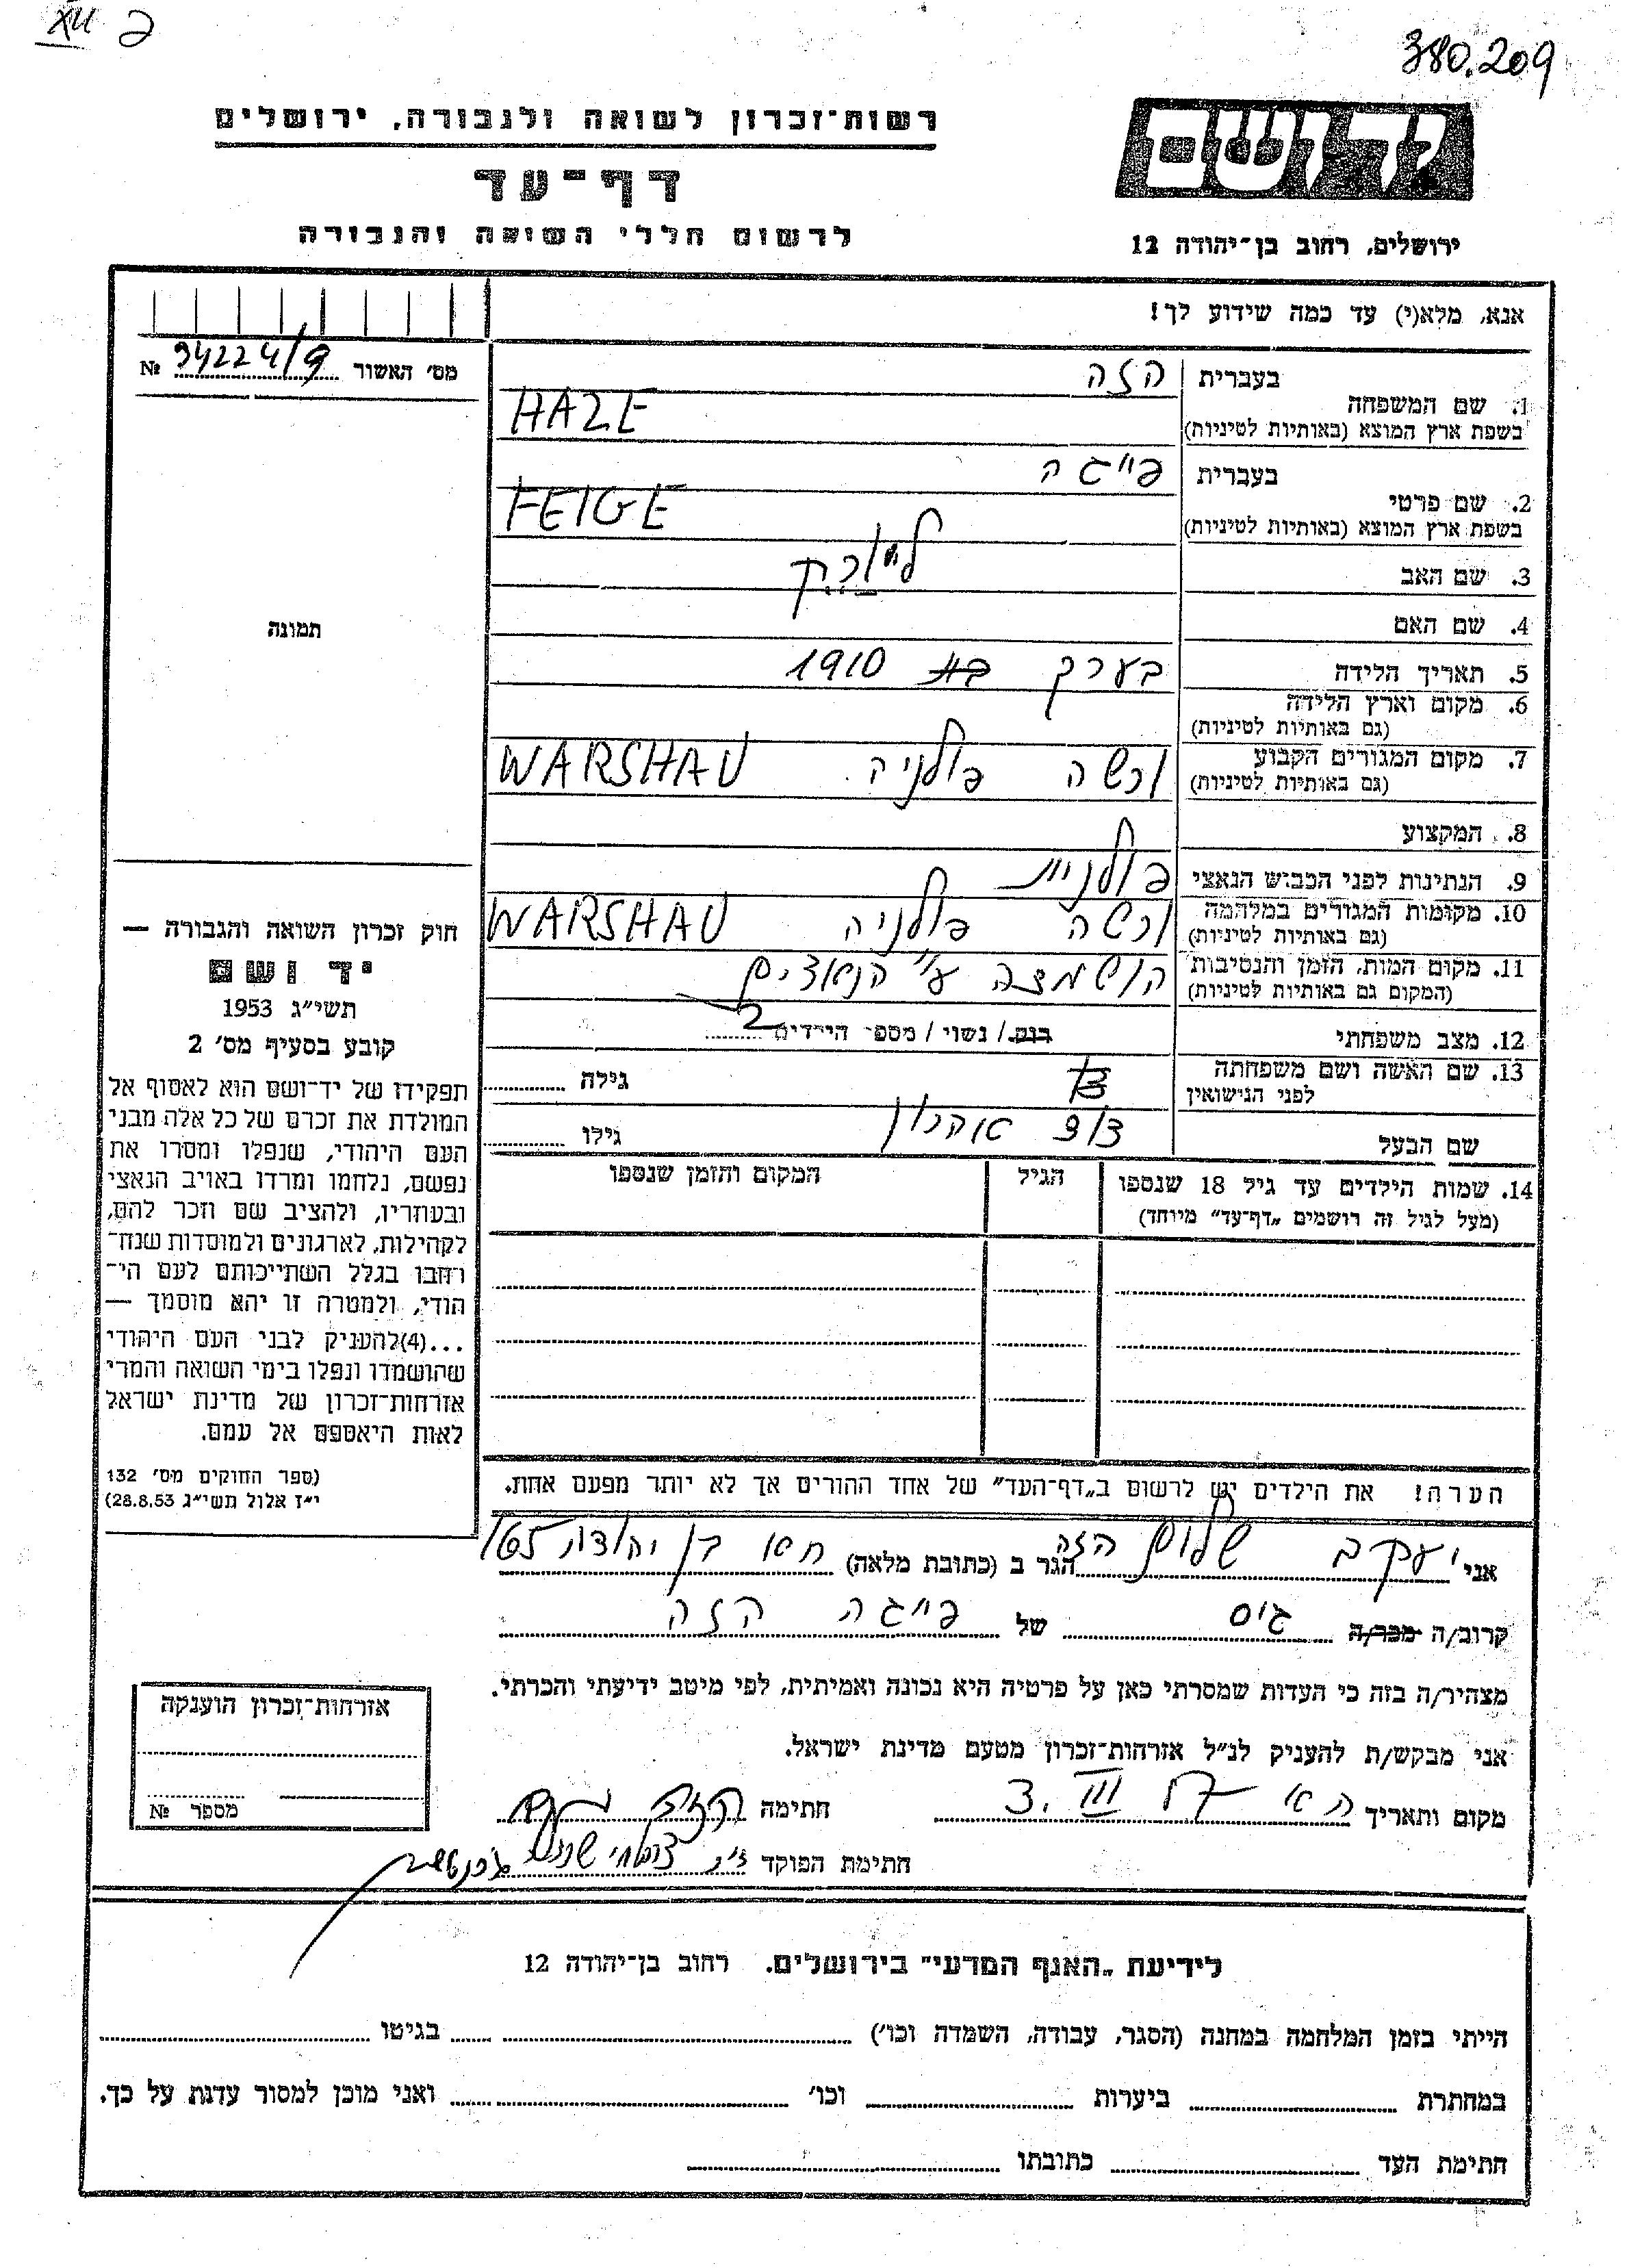 380.209
רשות־זכרון לשואה ולגבורה, ירושלים
יד ושם
דף־עד
לרשום חללי השואה והגבורה
ירושלים, רחוב בן־יהודה 12
אנא, מלא(י) עד כמה שידוע לך!
מס' האשור № 34224/9
בעברית הזה
1. שם המשפחה
בשפת ארץ המוצא (באותיות לטיניות) HAZE
בעברית פייגה
2. שם פרטי
בשפת ארץ המוצא (באותיות לטיניות) FEIGE
3. שם האב
4. שם האם
תמונה
5. תאריך הלידה בערך 1910
6. מקום וארץ הלידה
(גם באותיות לטיניות)
7. מקום המגורים הקבוע ורשה פולניה WARSHAU
(גם באותיות לטיניות)
8. המקצוע
9. הנתינות לפני הכבוש הנאצי פולנית
10. מקומות המגורים במלחמה ורשה פולניה WARSHAU
(גם באותיות לטיניות)
11. מקום המות, הזמן והנסיבות הושמדה ע"י הנאצים
(המקום גם באותיות לטיניות)
12. מצב משפחתי רווק / נשוי / מספר הילדים 2
13. שם האשה ושם משפחתה
לפני הנישואין גילה
שם הבעל אהרון גילו
14. שמות הילדים עד גיל 18 שנספו הגיל המקום והזמן שנספו
(מעל לגיל זה רושמים „דף־עד" מיוחד)
חוק זכרון השואה והגבורה —
יד ושם
תשי"ג 1953
קובע בסעיף מס' 2
תפקידו של יד־ושם הוא לאסוף אל
המולדת את זכרם של כל אלה מבני
העם היהודי, שנפלו ומסרו את
נפשם, נלחמו ומרדו באויב הנאצי
ובעוזריו, ולהציב שם וזכר להם,
לקהילות, לארגונים ולמוסדות שנח־
רבו בגלל השתייכותם לעם הי־
הודי, ולמטרה זו יהא מוסמך —
...(4)להעניק לבני העם היהודי
שהושמדו ונפלו בימי השואה והמרי
אזרחות־זכרון של מדינת ישראל
לאות היאספם אל עמם.
(ספר החוקים מס' 132
י"ז אלול תשי"ג 28.8.53)
הערה! את הילדים יש לרשום ב„דף־העד" של אחד ההורים אך לא יותר מפעם אחת.
אני יעקב שלום הזה הגר ב (כתובת מלאה) בן יהודה
קרוב/ה מכר/ה גיס של פייגה הזה
מצהיר/ה בזה כי העדות שמסרתי כאן על פרטיה היא נכונה ואמיתית, לפי מיטב ידיעתי והכרתי.
אני מבקש/ת להעניק לנ"ל אזרחות־זכרון מטעם מדינת ישראל.
מקום ותאריך 3. III חתימה
חתימת הפוקד
אזרחות־זכרון הוענקה
מספר №
לידיעת „האגף המדעי" בירושלים. רחוב בן־יהודה 12
הייתי בזמן המלחמה במחנה (הסגר, עבודה, השמדה וכו') בגיטו
במחתרת ביערות וכו' ואני מוכן למסור עדות על כך.
חתימת העד כתובתו